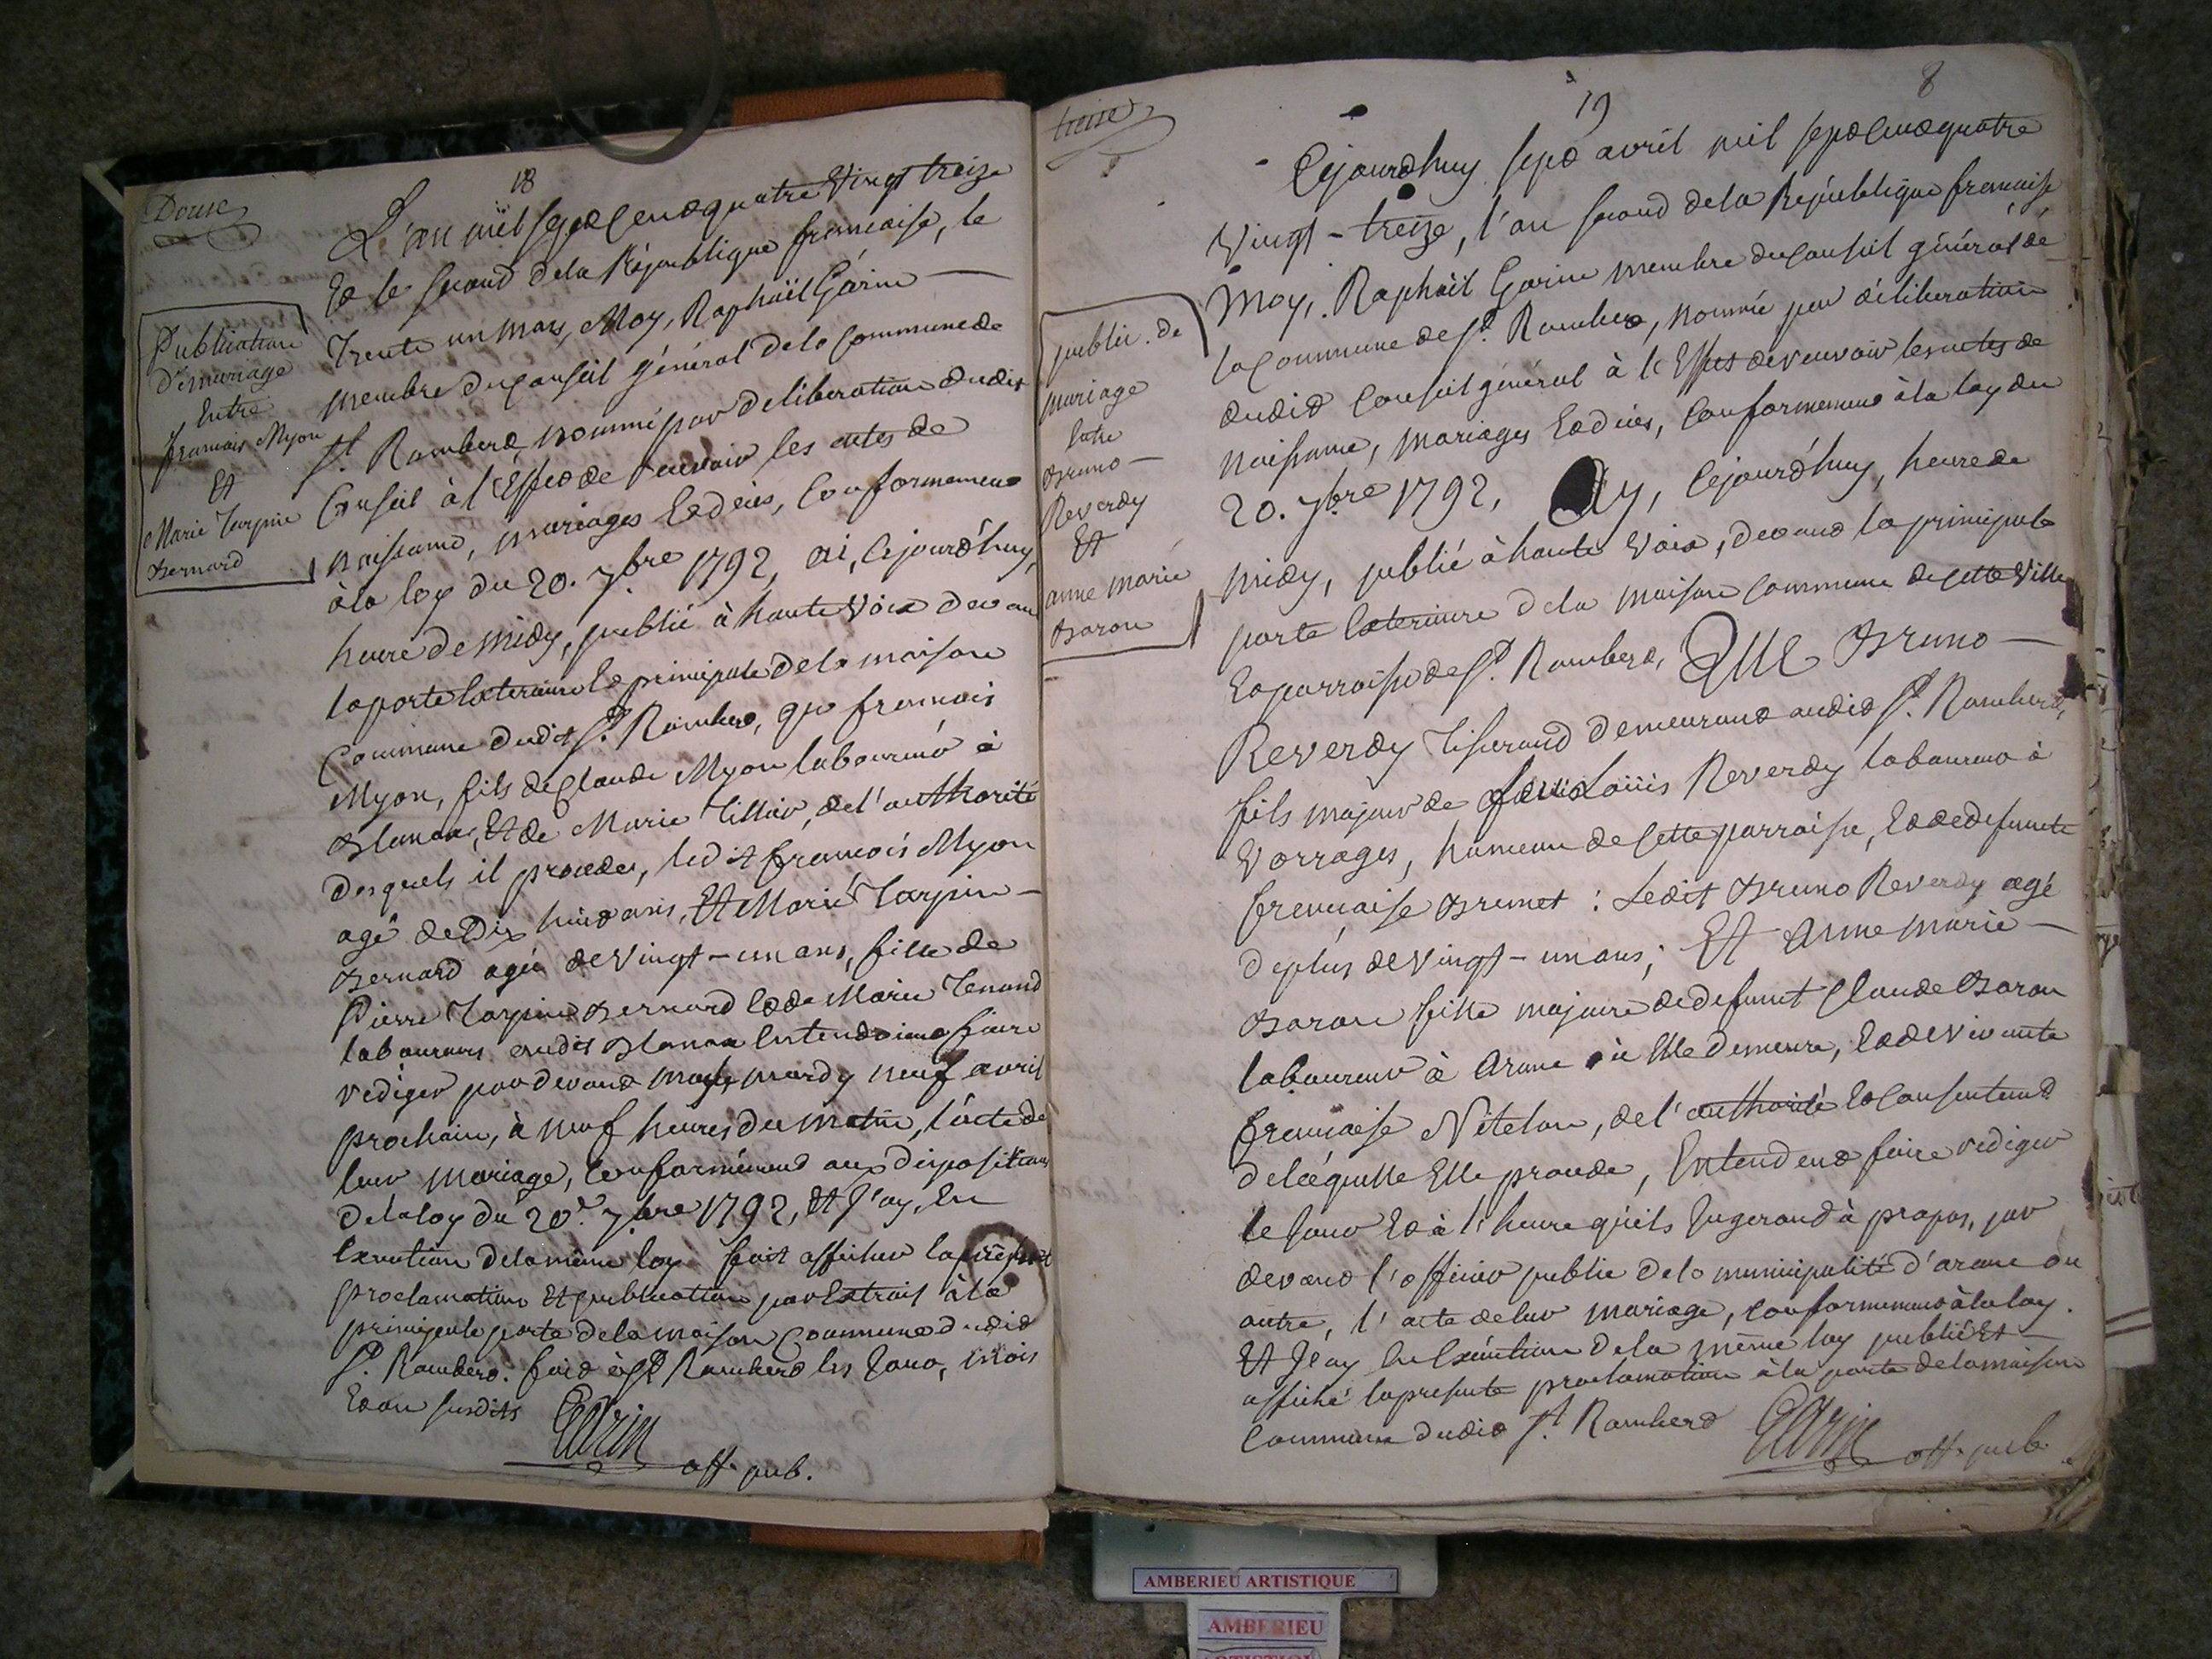 18
Douse
L'an mil sept cent quatre vingt treize
Et le second de la République francaise, le
Trente un mars, Moy, Raphaël Garin
membre du Conseil général de la Commune de
St. Rambert, nommé par deliberation dudit
Conseil à l'Effet de recevoir les actes de
naissance, mariages Et decès, Conformement
à la loy du 20. 7bre 1792, ai, Cejourd'huy,
heure de midy, publié à haute voix devant
la porte Exterieure Et principale de la maison
Commune dudit St. Rambert, que francois
Myon, fils de Claude Myon laboureur à
Blanaz, Et de Marie Tillier, de l'authorité
desquels il procede, ledit francois Myon
agé de Dix huit ans, Et Marie Tarpin
Bernard agée de vingt-un ans, fille de
Pierre Tarpin Bernard Et de Marie Tenand
laboureurs audit Blanaz Entendoient faire
rédiger par devant moy, mardy neuf avril
prochain, à neuf heures du matin, l'acte de
leur mariage, Conformément aux dispositions
de la loy du 20e. 7bre 1792, Et J'ay, En
Execution de la même loy fait afficher la présente
proclamation Et publication par Extrait à la
principale porte de la maison Commune dudit
St. Rambert. fait à St Rambert les Jour, mois
Et an susdits
Garin
off. pub.
Publication
de mariage
Entre
francois Myon
Et
Marie Tarpin
Bernard
treize
19
8
Cejourdhuy sept avril mil sept cent quatre
Vingt-treize, l'an second de la République francaise
Moy, Raphaël Garin membre du Conseil général de
la Commune de St. Rambert, nommé par déliberation
dudit Conseil général à l'Effet de recevoir les actes de
naissance, mariages Et decès, Conformement à la loy du
20. 7bre 1792, Ay, Cejourd'huy, heure de
midy, publié à haute voix, devant la principale
porte Exterieure de la maison Commune de Cette Ville
Et parroisse de St. Rambert, QUE Bruno
Reverdy Tisserand demeurant audit St. Rambert,
fils majeur de Louis Reverdy laboureur à
Vorrages, hameau de Cette parroisse, Et de defuncte
francaise Brunet : Ledit Bruno Reverdy agé
de plus de vingt-un ans; Et Anne marie
Baron fille majeure de defunt Claude Baron
laboureur à Arane où Elle demeure, Et de vivante
francaise Nitelon, de l'authorité Et Consentement
de laquelle Elle procede, Entendent faire rediger
le Jour Et à l'heure qu'ils Jugeront à propos, par
devant l'officier public de la municipalité d'arane ou
autre, l'acte de leur mariage, conformement à la loy.
Et J'ay En Exécution de la même loy publié Et
affiché la presente proclamation à la porte de la maison
Commune dudit St. Rambert
Garin
off. pub.
public. de
mariage
Entre
Bruno
Reverdy
Et
anne marie
Baron
AMBERIEU ARTISTIQUE
AMBERIEU
ARTISTIQUE